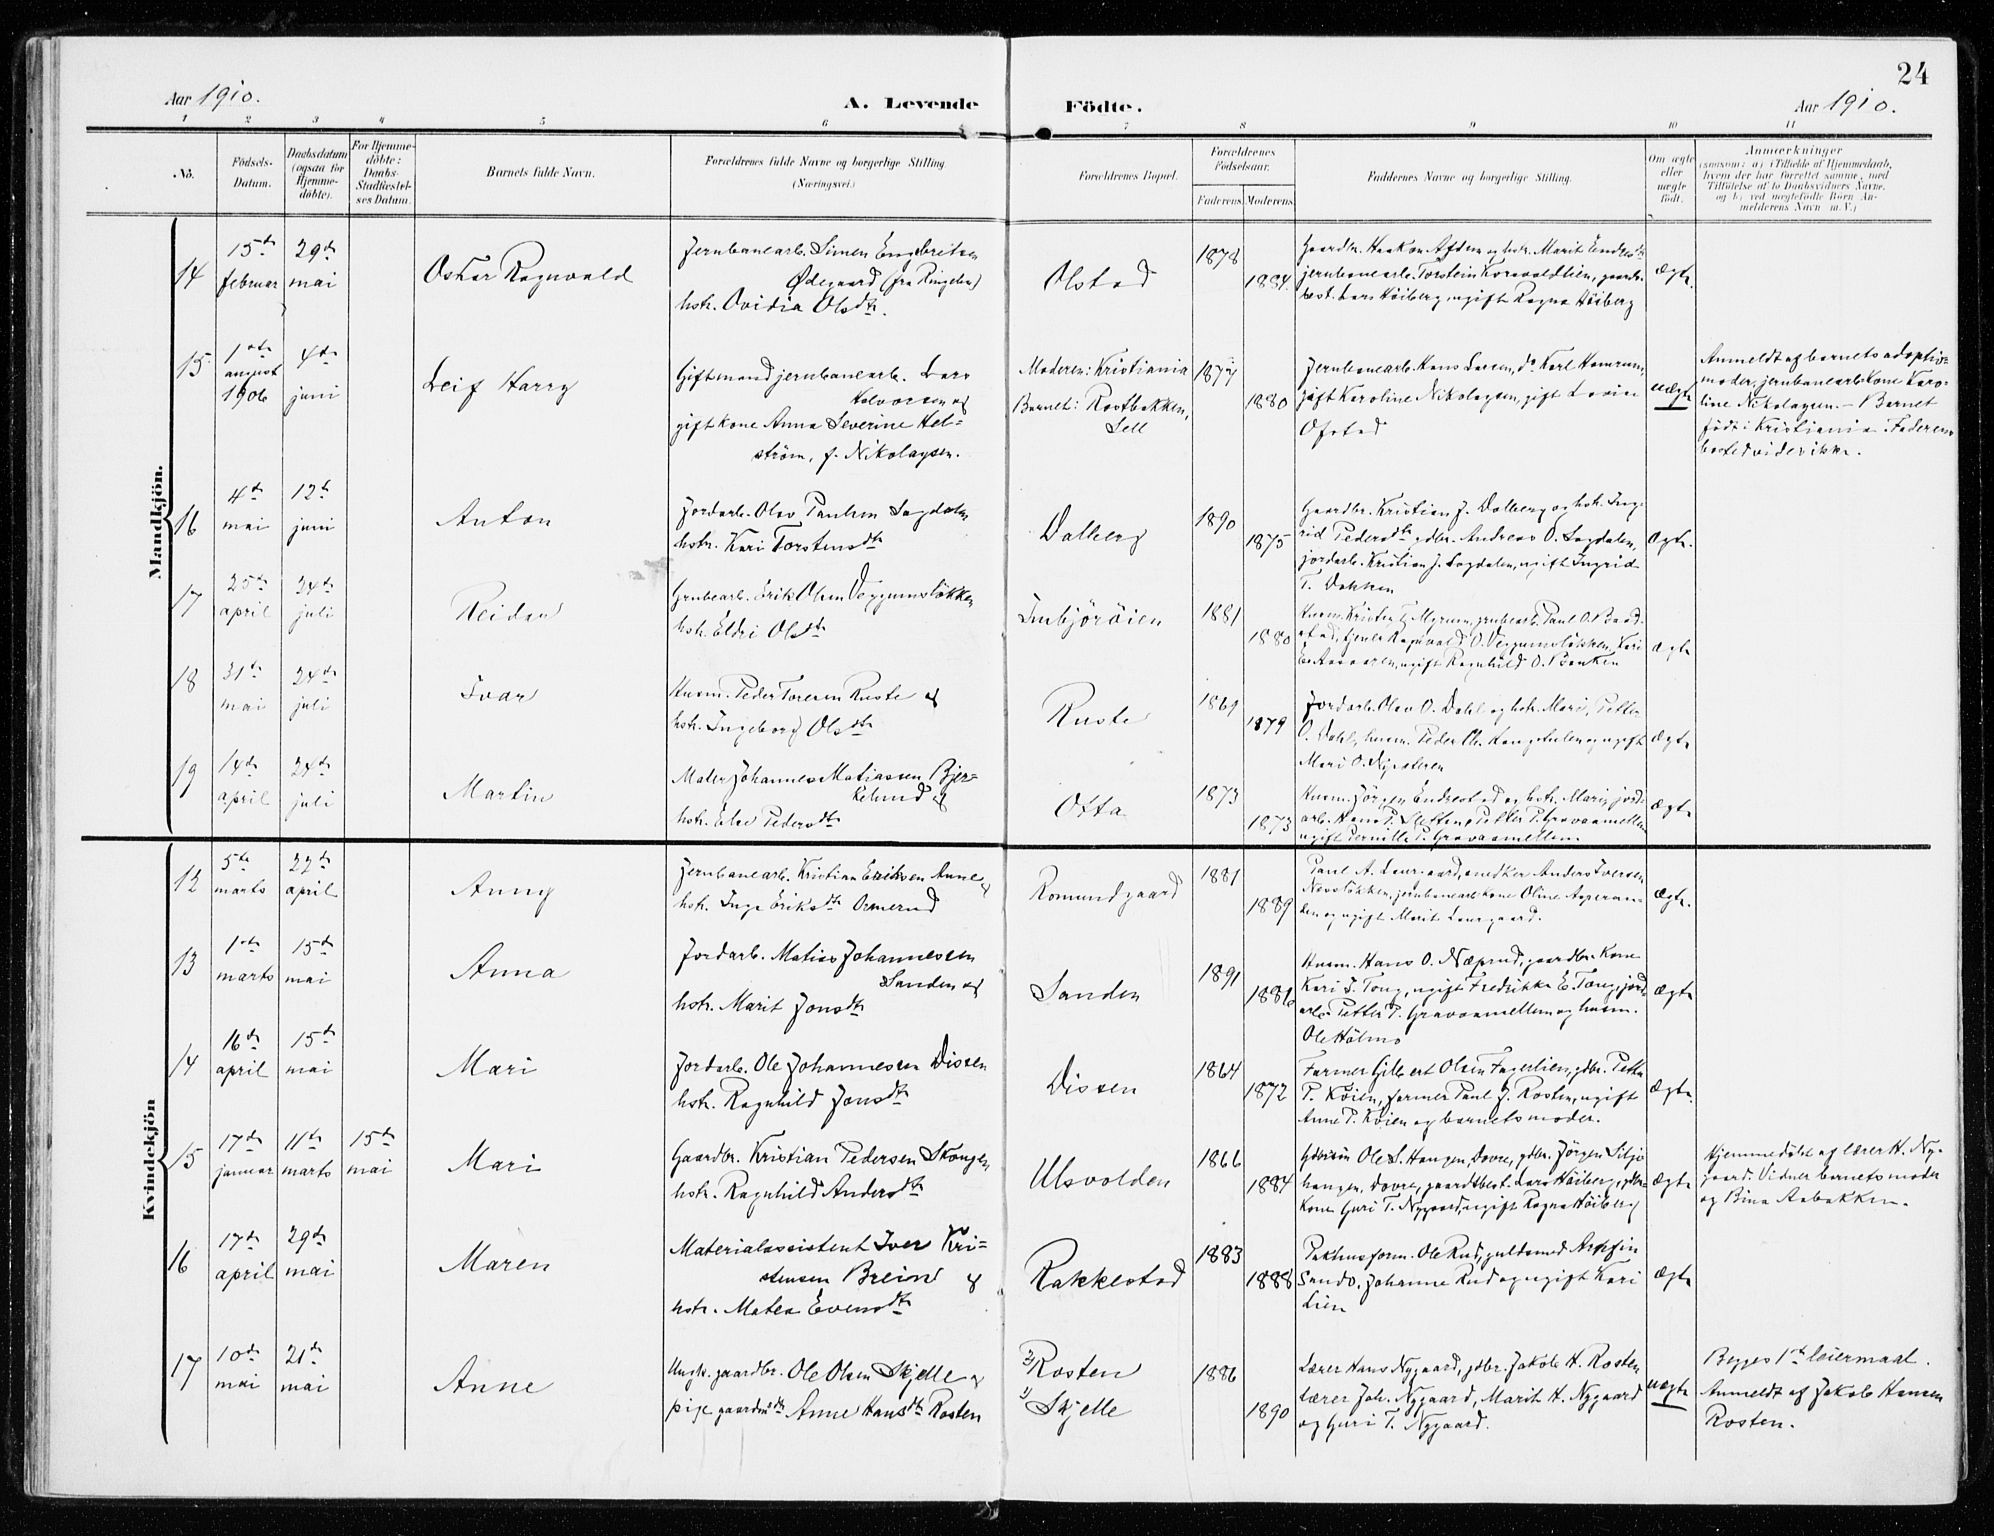 24
Aar 1910.
A. Levende
Födte.
Aar 1910.
1 2 3 4 5 6 7 8 9 10 11
No.
Födsels-
Datum.
Daabsdatum
(ogsaa for
Hjemme-
döbte).
For Hjemme-
döbte:
Daabs-
Stadfæstel-
ses Datum.
Barnets fulde Navn.
Forældrenes fulde Navne og borgerlige Stilling.
(Næringsvei.)
Forældrenes Bopæl.
Forældrenes
Födselsaar.
Faderens
Moderens
Faddernes Navne og borgerlige Stilling.
Om ægte
eller
uægte
födt.
Anmærkninger
(saasom: a) i Tilfælde af Hjemmedaab,
hvem der har forrettet samme, med
Tilföielse af to Daabsvidners Navne.
og b) ved uegtefödte Börn An-
melderens Navn m. V.)
Mandkjön.
14
15de
februar
29de
mai
Oskar Ragnvald
Jernbanearb. Simen Engebretsen
Ødegaard (fra Ringebu)
hstr. Ovidia Olsdtr.
Olstad
1878
1884.
Gaardbr. Haakon Aften og hstr. Marit Endresdtr
jernbanearb. Torstein Korsvoldlien, gaardb-
best. Lars Höiberg, ugift Ragna Höiberg
ægte.
15
1ste
august
1906
4de
juni
Leif Harry
Gift mand jernbanearb. Lars
Halvorsen og
gift kone Anna Severine Hel=
ström, f. Nikolaysen.
Moderen: Kristiania
Barnet: Rostbakken,
Sell
1877
1880
Jernbanearb. Hans Larsen, do Karl Hamrum,
gift Karoline Nikolaysen, gift Lovise
Ofstad
uægte
Anmeldt af barnets adoptiv=
moder, jernbanearb. kone Karo-
line Nikolaysen. - Barnet
födt i Kristiania. Faderens
bosted vides ikke.
16
4de
mai
12te
juni
Anton
Jordarb. Olav Paulsen Sagdalen
hstr. Kari Torstensdtr
Dalberg
1890
1875
Gaardbr. Kristian J. Dalberg og hstr. Ing-
rid Pedersdtr, gdbr. Andreas O. Sagdalen,
jordarb. Kristian J. Sagdalen, ugift Ingrid
T. Dakken
ægte.
17
25de
april
24de
juli
Reidar
Grubearb. Erik Olsen Veggumslökken
hstr. Eldri Olsdtr
Imbjöröien
1881
1880
ægte
18
31te
mai
24de
juli
Ivar
Husm. Peder Toresen Ruste og
hstr. Ingeborg Olsdtr
Ruste
1869
1879
Jordarb. Olav O. Dahl og hstr. Mari, Petter
O. Dahl, husm. Peder Ch. Haugstulen og ugift
Mari O. Nysteren
ægte
19
14de
april
24de
juli
Martin
Maler Johannes Matiassen Bjer=
kelund og
hstr. Else Pedersdtr
Otta
1873
1873
Husm. Jörgen Endrestad og hstr. Mari, jord-
arb. Hans P. Sletten, Petter P. Gravaamellem
ugift Pernille P. Gravaamellem.
ægte
Kvindekjön
12
5te
marts
22de
april
Anny
Jernbanearb. Kristian Eriksen Aune og
hstr. Inga Eriksdtr Ormerud
Romundgaard
1881
1889
Paul A. Laurgaard, snedker Anders Iversen
Næslökken, jernbanearb. kone Oline Asperan-
den og ugift Marit Laurgaard.
ægte.
13
1ste
marts
15de
mai
Anna
Jordarb. Matias Johannessen
Sanden og
hstr. Marit Jonsdtr
Sanden
1891
1886
Husm. Hans O. Næprud, gaardbr. kone
Kari I. Toug, ugift Fredrikke E. Toug, jord-
arb. Petter P. Gravaamellem og husm.
Ole Hölmo
ægte
14
16de
april
15de
mai
Mari
Jordarb. Ole Johannesen Dissen
hstr. Ragnhild Jonsdtr
Dissen
1864
1872
Farmer Gilbert Olsen Fagerlien, gdbr. Petter
P. Köien, farmer Paul J. Rosten, ugift
Anne P. Köien og barnets moder.
ægte.
15
17de
januar
11te
marts
15de
mai
Mari
Gaardbr. Kristian Pedersen Skougen
hstr. Ragnhild Andersdtr
Ulsvolden
1866
1884
Ole S. Haugen, Dovre, gdbr. Jörgen Siljo
haugen, Dovre, gaardbest. Lars Höiberg, gdbr-
kone Guri T. Nygaard, ugift Ragna Höiberg
ægte
Hjemmedöbt af lærer H. Ny-
gaard. Vidner barnets moder
og Bina Aabakken.
16
17de
april
29de
mai
Maren
Materialassistent Iver Kri=
stensen Breivø og
hstr. Matea Evensdtr
Rakkestad
1883
1888
Pakhusform. Ole Rud, guldsmed Arnfin
Sandø, Johanne Rud og ugift Kari
Lien
ægte
17
10de
mai
21de
mai
Anne
Ungk. gaardbr. Ole Olsen Skjelle og
pige gaardmdtr Anne Hansdtr Rosten
2) Rosten
1) Skjelle
1886
1890
Lærer Hans Nygaard, gdbr. Jakob H. Rosten
lærer Joh. Nygaard, Marit H. Nygaard
og Guri T. Nygaard.
uægte
Begges 1ste leiermaal.
Anmeldt af Jakob Hansen
Rosten.